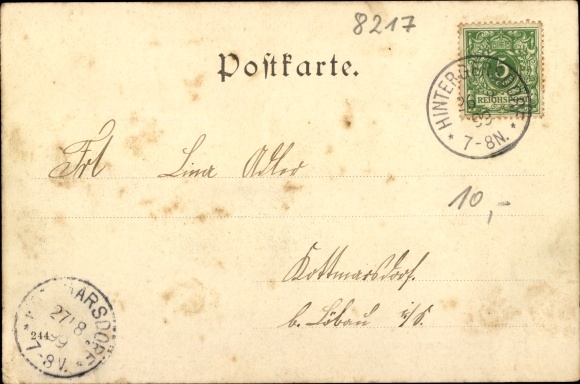 8217
Postkarte.
5
REICHSPOST
HINTER-
99
* 7-8N. *
Frl Lina Adler
10,-
Kottmarsdorf.
b. Löbau i/S.
KOTTMARSDORF
27/8
2449
99
7-8V.